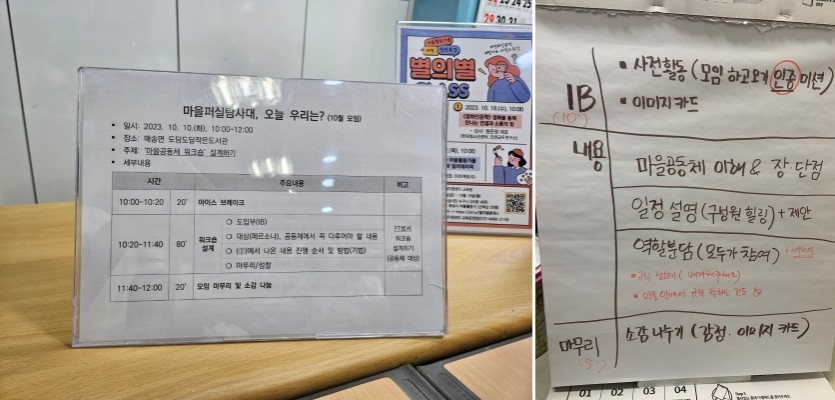 마을퍼실탐사대, 오늘 우리는? (10월 모임)
• 일시: 2023. 10. 10.(화), 10:00~12:00
• 장소: 매송면 도담도담작은도서관
• 주제: '마을공동체 워크숍' 설계하기
• 세부내용
시간 주요내용 비고
10:00~10:20 20' 아이스 브레이크
10:20~11:40 80' 워크숍 설계
❍ 도입부(IB)
❍ 대상(페르소나), 공동체에서 꼭 다루어야 할 내용
❍ (2)에서 나온 내용 진행 순서 및 방법(기법)
❍ 마무리/성찰
FT로서
워크숍
설계하기
(공동체 대상)
11:40~12:00 20' 모임 마무리 및 소감 나눔
별의별
CLASS
2023. 10. 18(수), 10:00
29 30 31
IB
(10')
• 사전활동 (모임 하고오기 인증 미션)
• 이미지카드
내용
마을공동체 이해 & 장·단점
일정 설명 (구성원 힐링) + 제안
역할분담 (모두가 참여)
마무리
(5')
소감 나누기 (감정·이미지 카드)
01 02 03 04